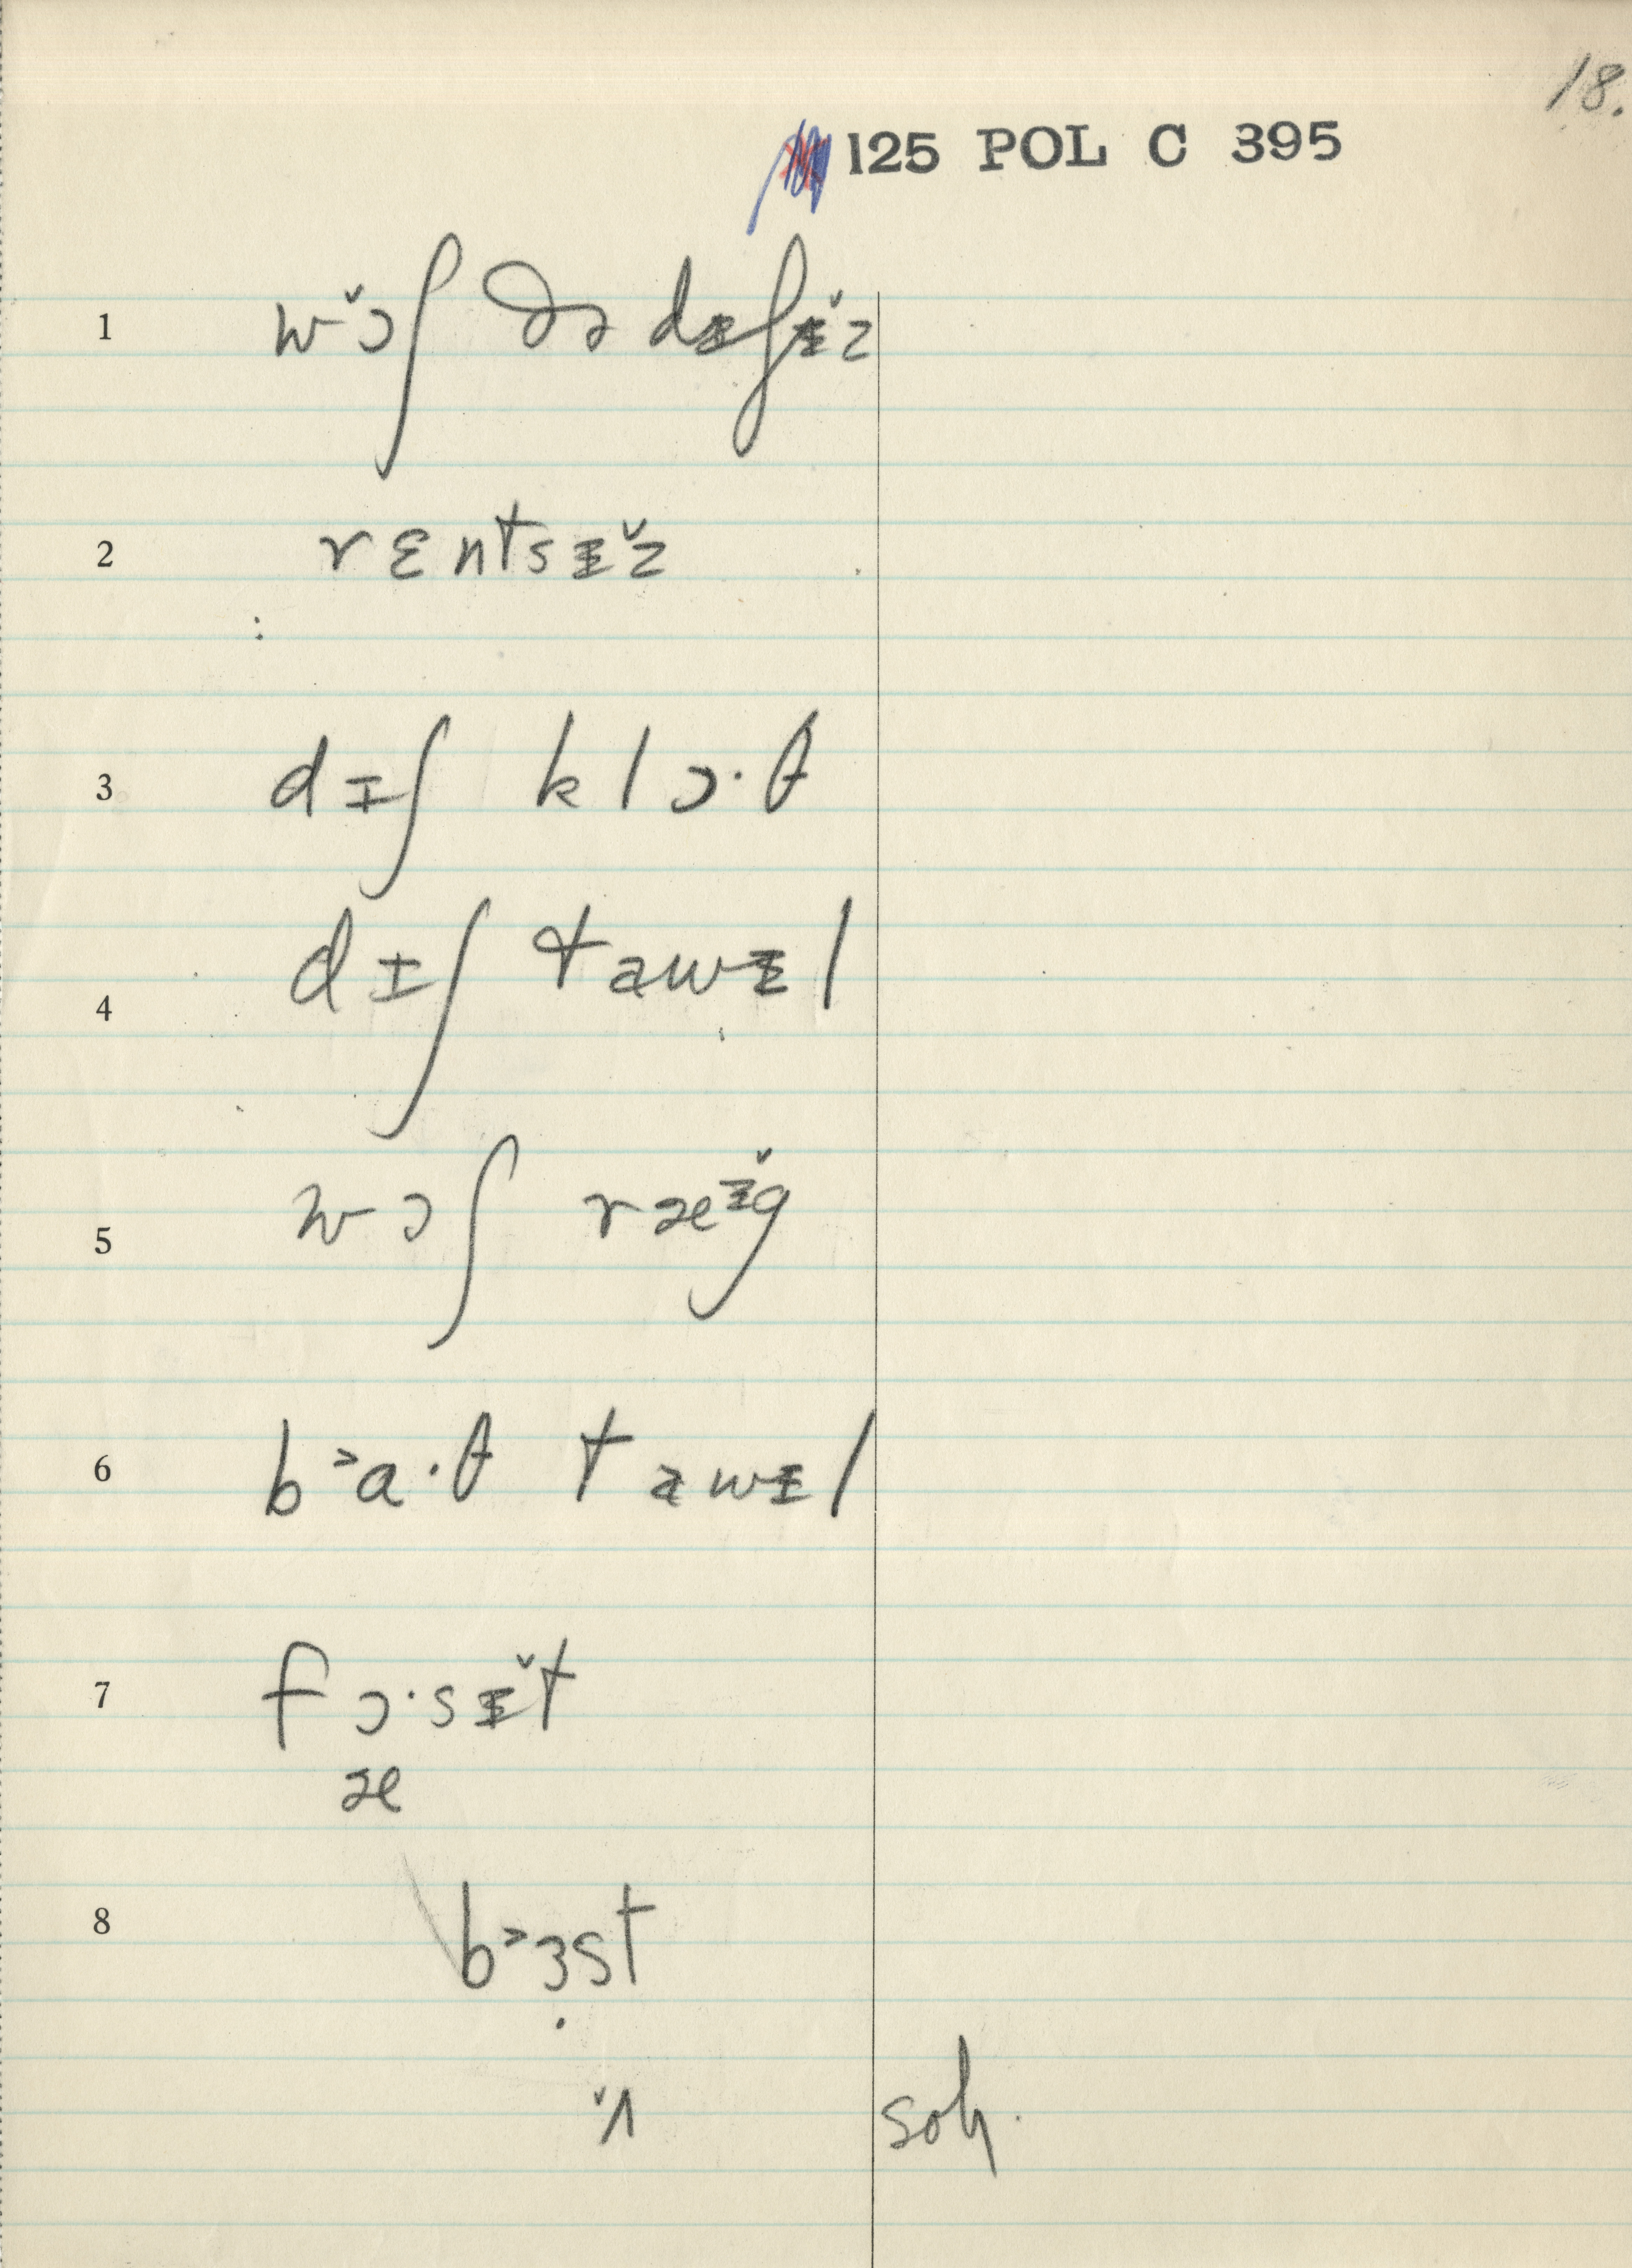 18.
125 POL C 395
1 w ɔ̌ʃ ðə dɪʃɪ̌z
2 rɛntsɪ̌z
3 dɪʃ klɔ·θ
4 dɪʃ tawɪl
5 wɔʃ ræɪ̌g
6 b˃a·θ tawɪl
7 fɔ·sɪ̌t
æ
8 b˃ɜst
ˇʌ soh.